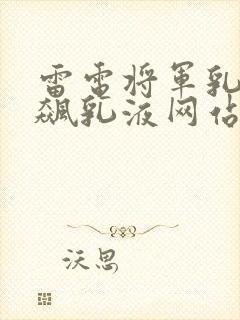 雷电将军乳
飙乳液网佔
沃思